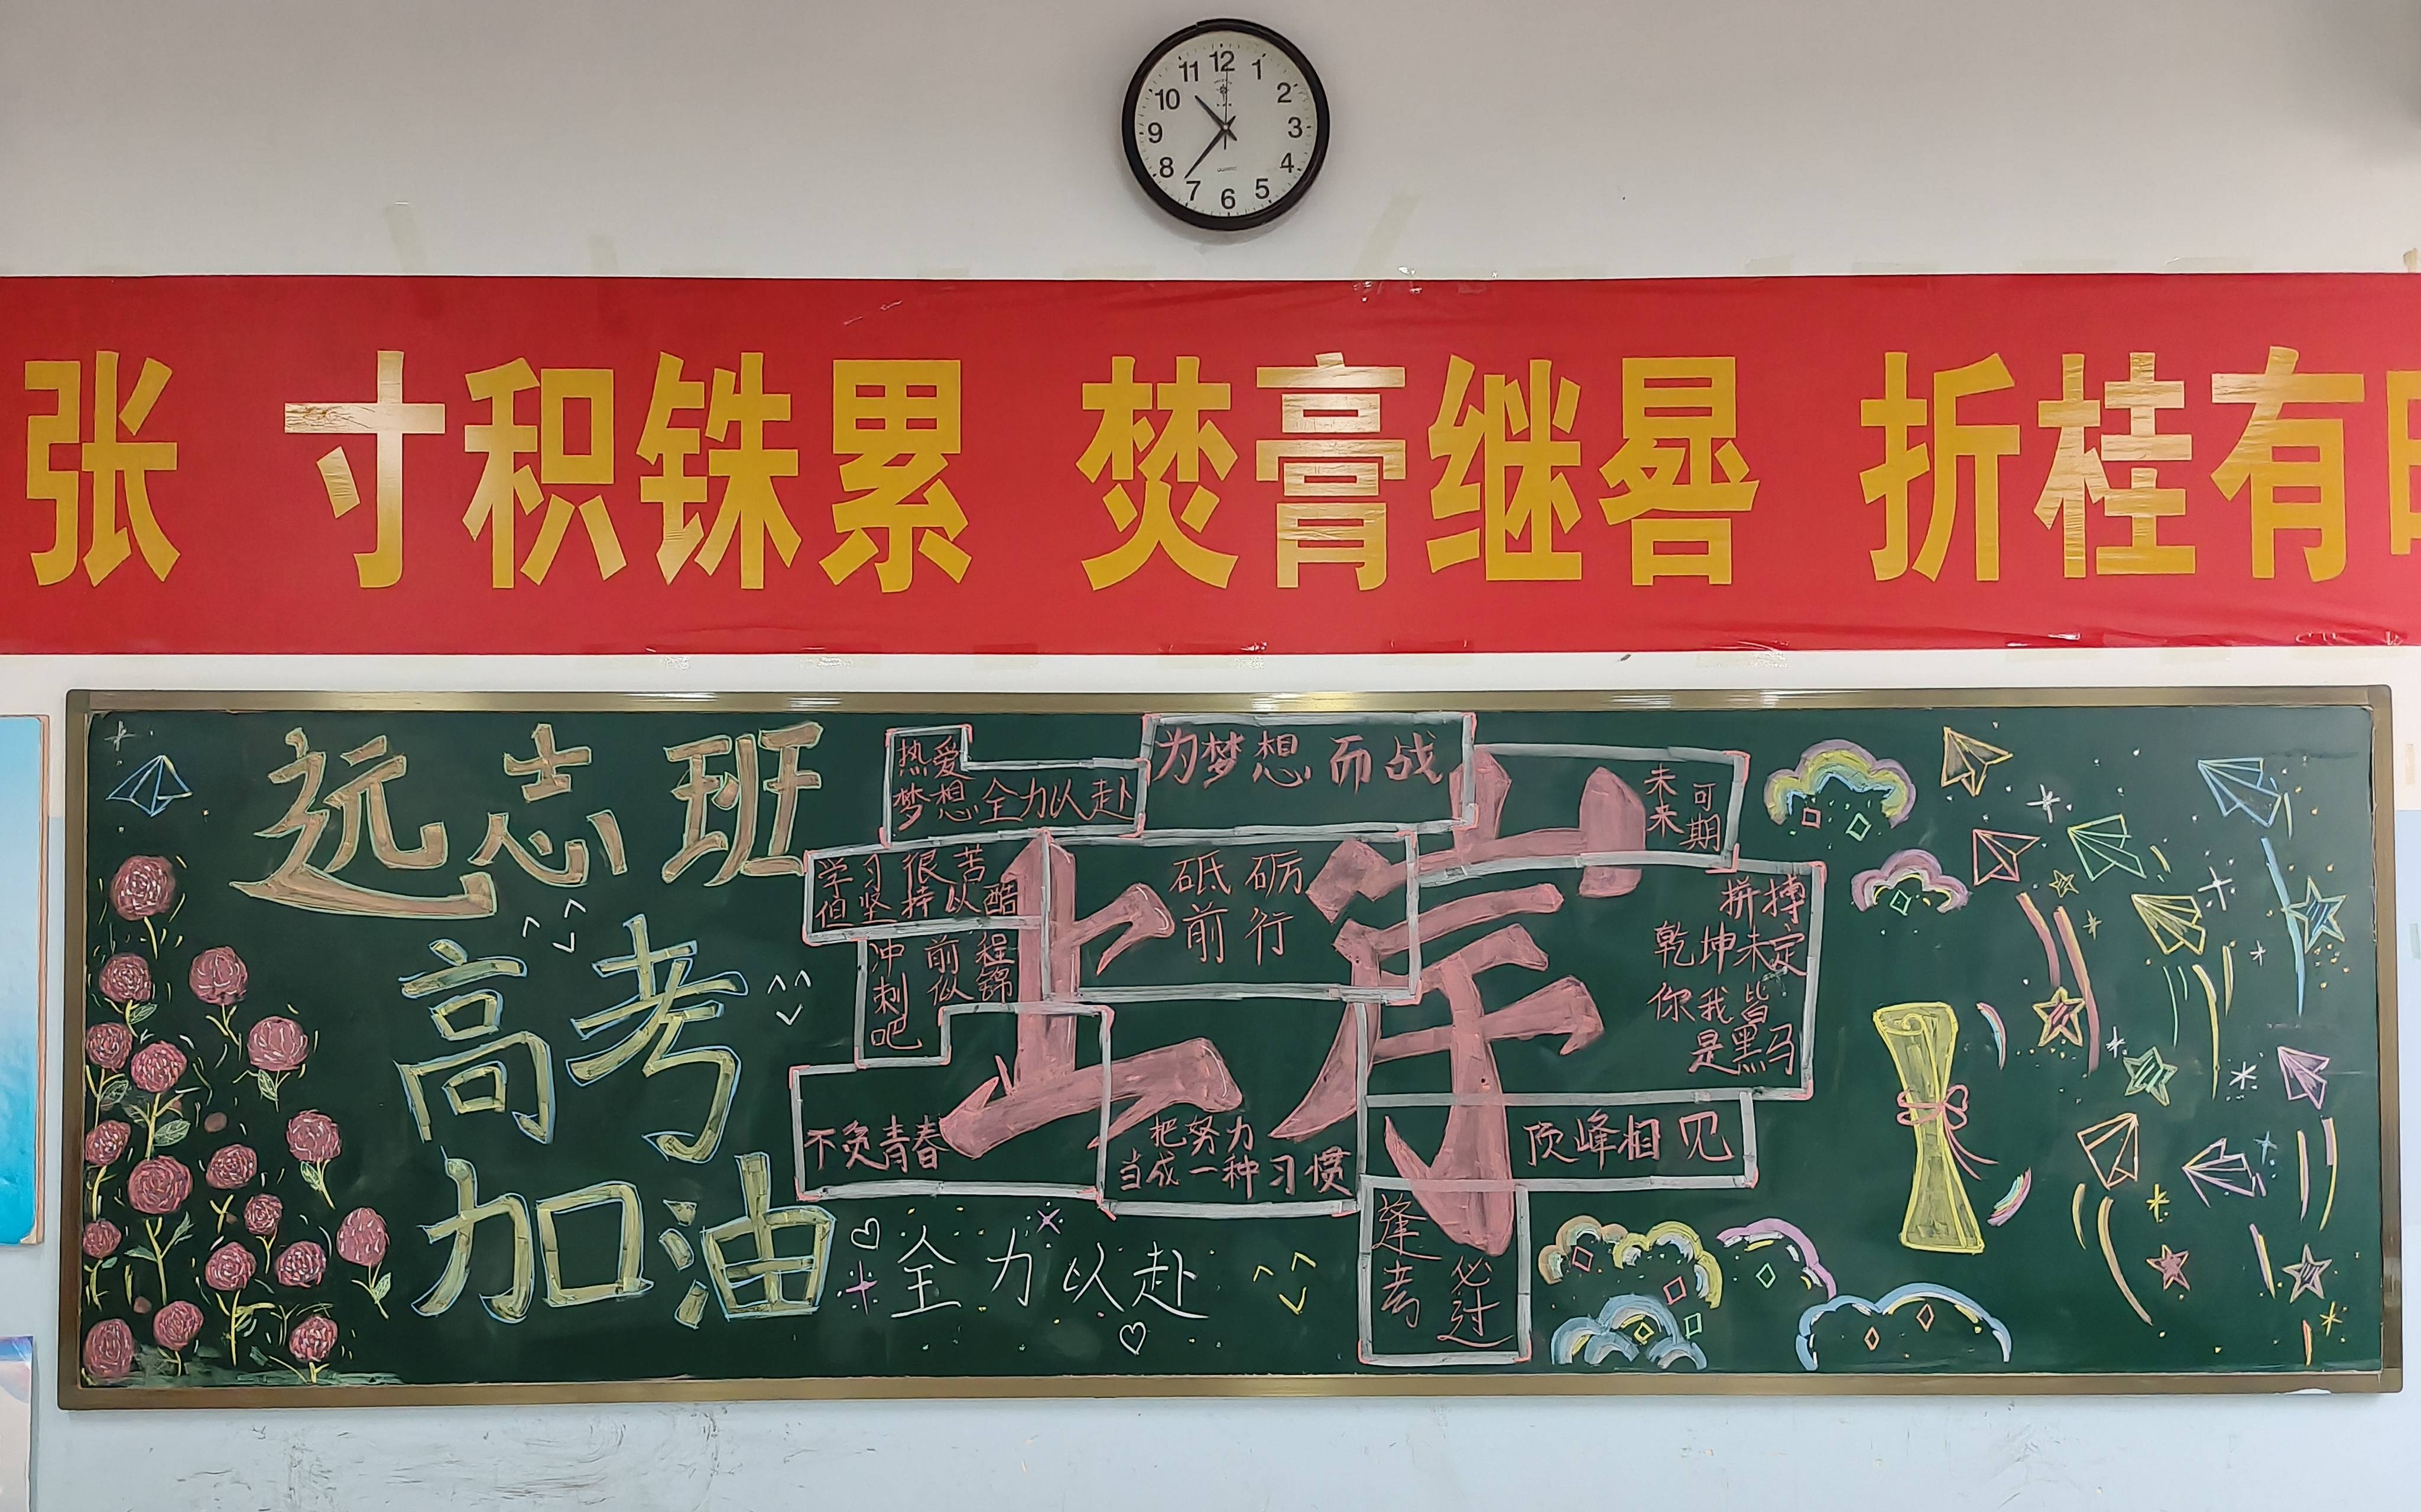 12
1
2
3
4
5
6
7
8
9
10
11
QUARTZ
张 寸积铢累 焚膏继晷 折桂有
远志班
高考
加油
上岸
热爱
梦想全力以赴
为梦想而战
未来
可期
学习很苦
但坚持以酷
砥砺
前行
拼搏
乾坤未定
你我皆
是黑马
冲刺吧
前似
程锦
不负青春
把努力
当成一种习惯
顶峰相见
逢考
必过
全力以赴